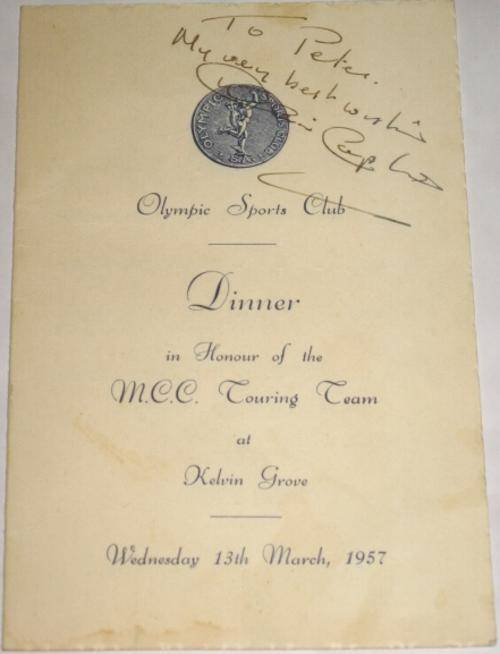 To Peter.
My very best wishes
OLYMPIC SPORTS CLUB
Olympic Sports Club
Dinner
in Honour of the
M.C.C. Touring Team
at
Kelvin Grove
Wednesday 13th March, 1957